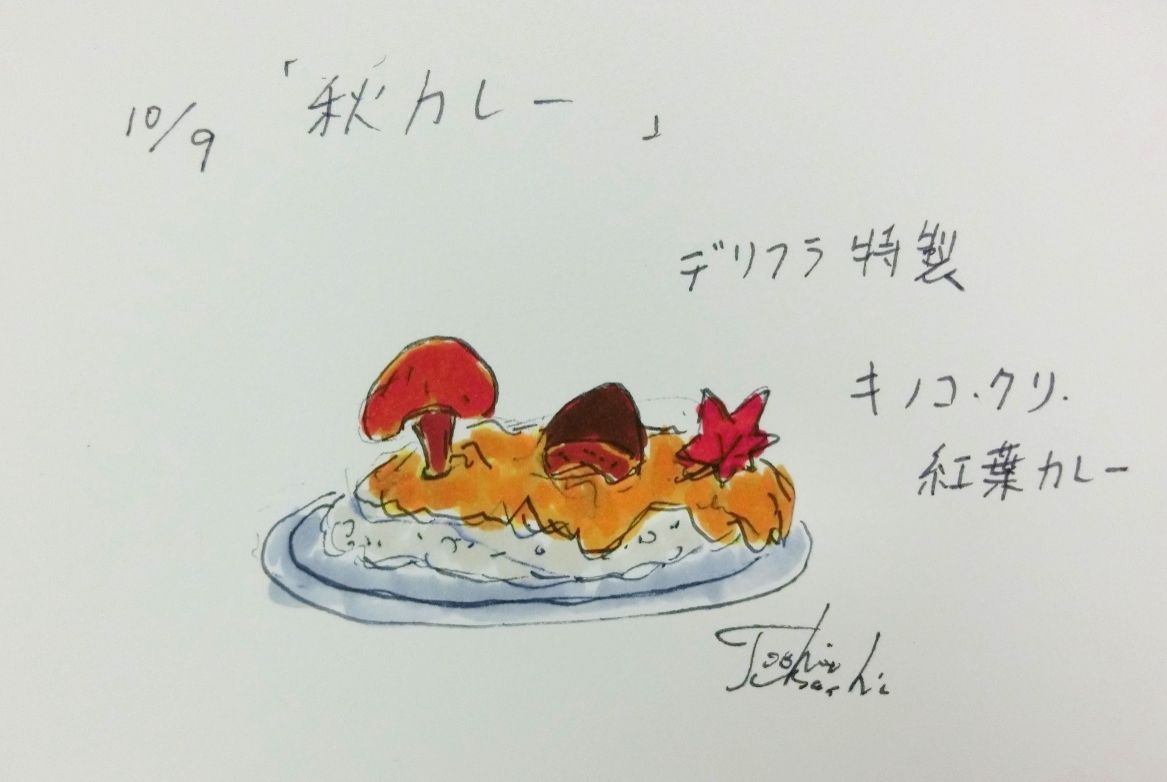 10/9 「秋カレー 」
デリフラ 特製
キノコ.クリ.
紅葉カレー